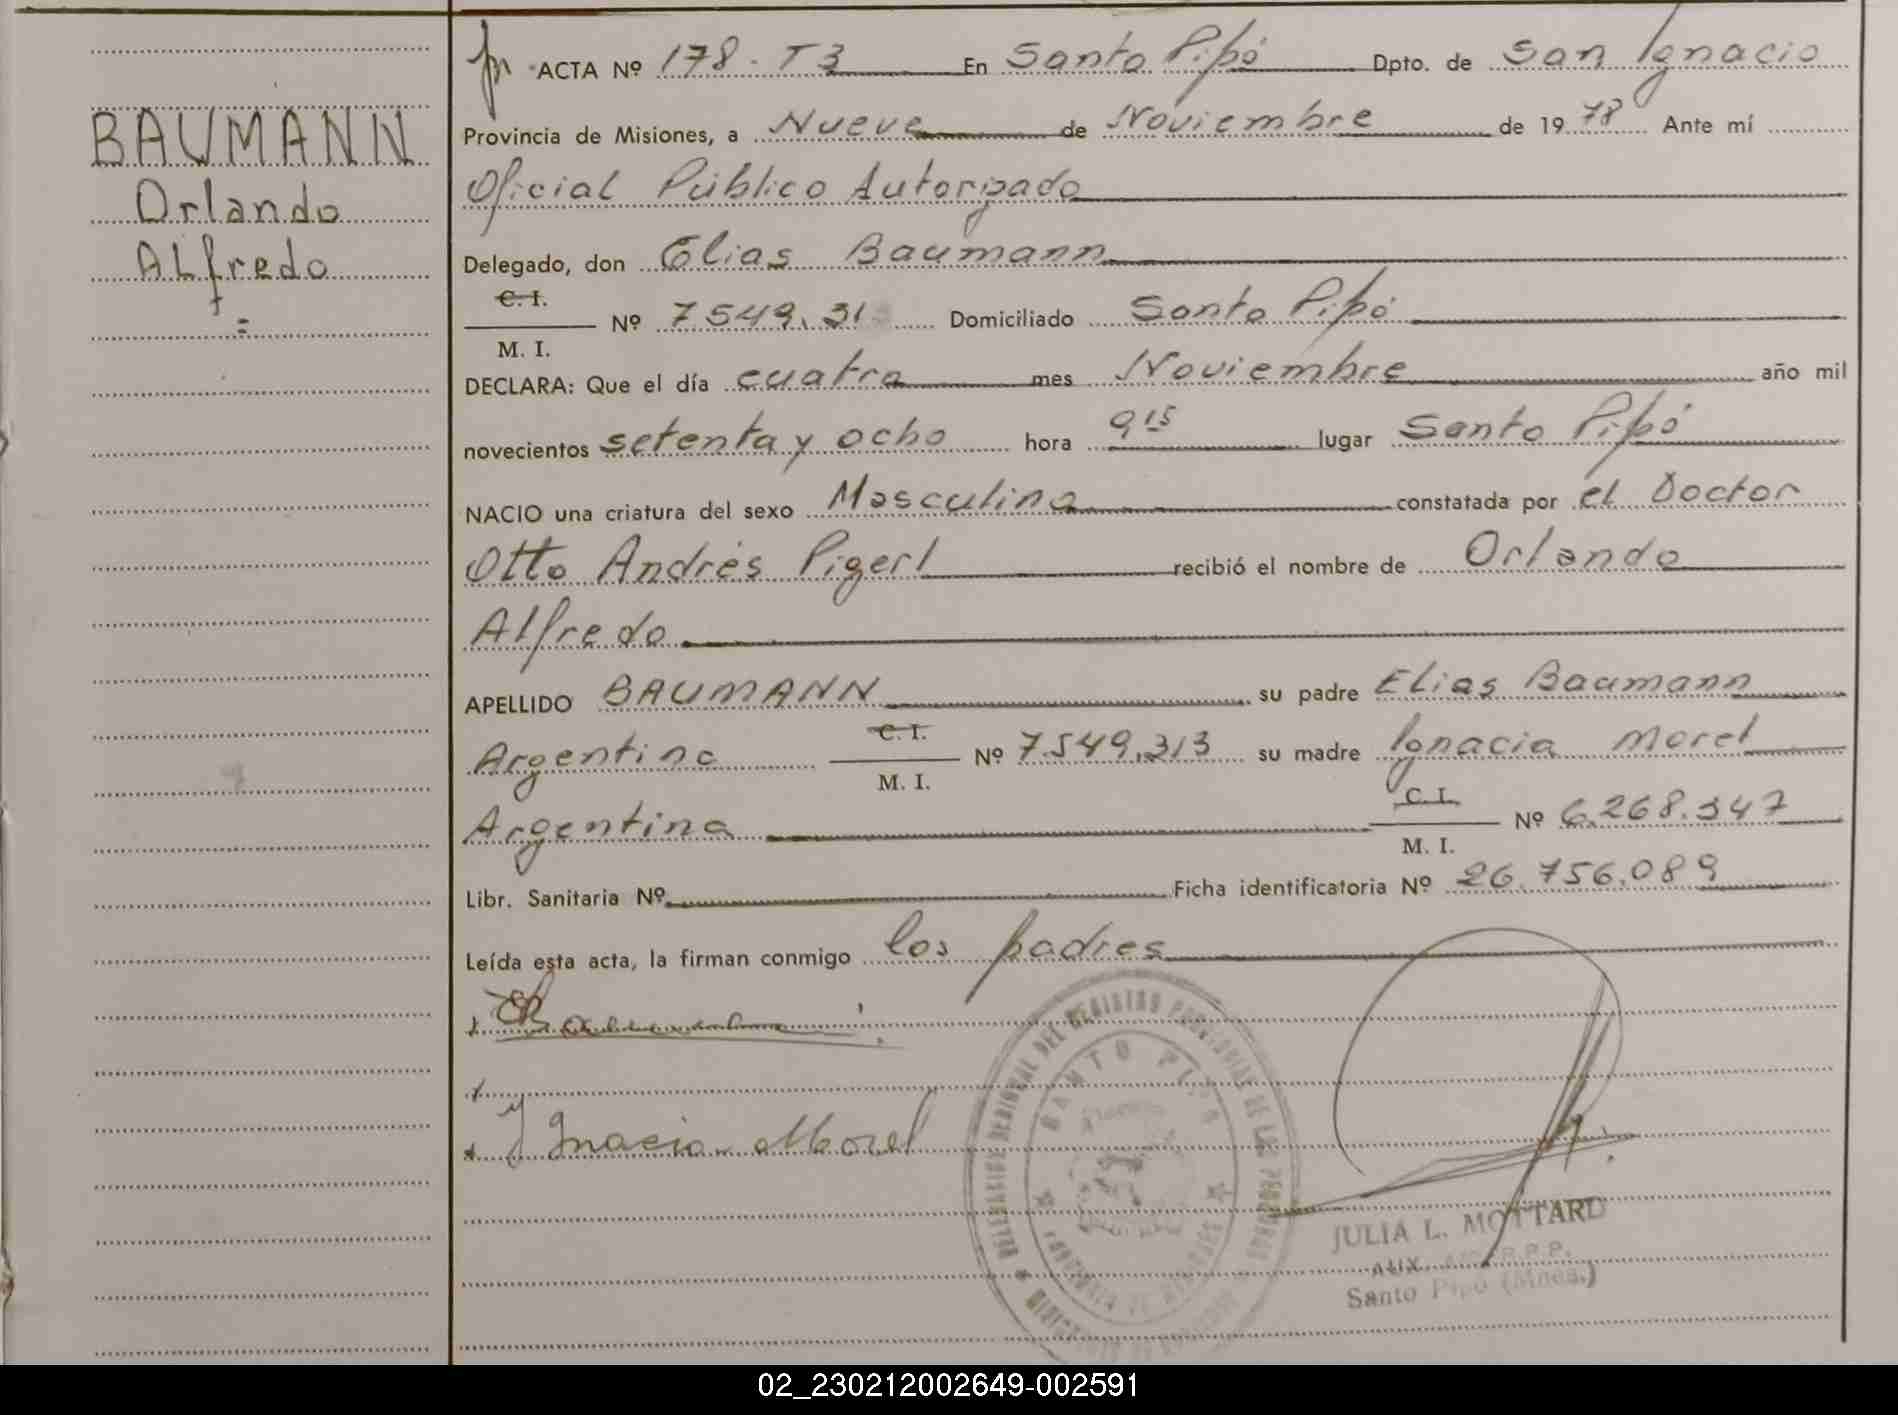 BAUMANN
Orlando
ALfredo
ACTA Nº 178-T3 En Santo Pipó Dpto. de San Ignacio
Provincia de Misiones, a Nueve de Noviembre de 1978 Ante mí
Oficial Público Autorizado
Delegado, don Elias Baumann
C. I.
M. I. Nº 7549.313 Domiciliado Santo Pipó
DECLARA: Que el día cuatro mes Noviembre año mil
novecientos setenta y ocho hora 9,15 lugar Santo Pipó
NACIO una criatura del sexo Masculino constatada por el Doctor
Otto Andrés Pigerl recibió el nombre de Orlando
Alfredo
APELLIDO BAUMANN su padre Elias Baumann
Argentino C. I. M. I. Nº 7.549.313 su madre Ignacia Morel
Argentina C. I. M. I. Nº 6.268.347
Libr. Sanitaria Nº Ficha identificatoria Nº 26.756.089
Leída esta acta, la firman conmigo los padres
Ignacia Morel
SANTO PIPO
JULIA L. MOTTARD
AUX.
Santo Pipó (Mnes.)
02_230212002649-002591